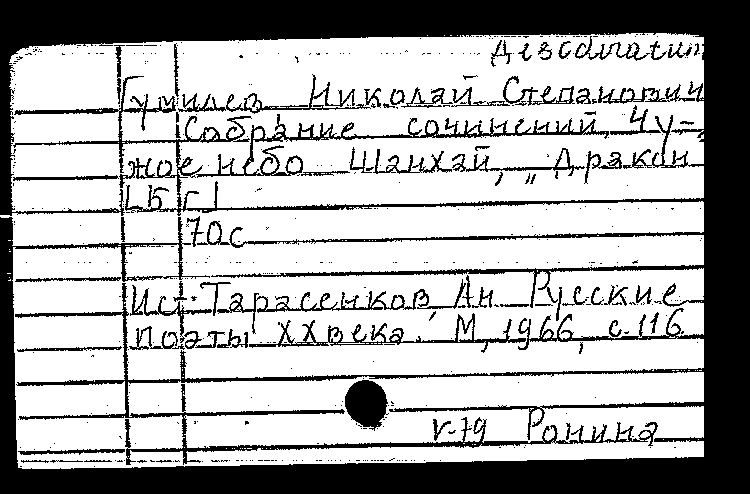 Дезсdıratum
Гумилев Николай Степанович
Собрание сочинений. Чу-
жое небо Шанхай, „Дракон
[Б г]
70с
Ист. Тарасенков, Ан. Русские
поэты XX века. М, 1966, с. 116
V-79 Ронина